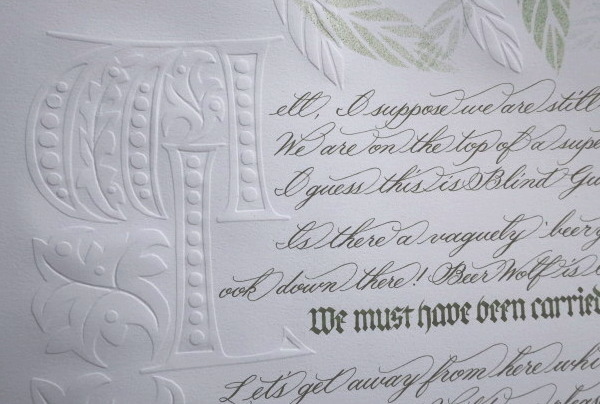 Well, I suppose we are still
We are on the top of a supe
I guess this is Blind Gu
Is there a vaguely beery
Look down there! Beer Wolf is
We must have been carried
Let's get away from here whi